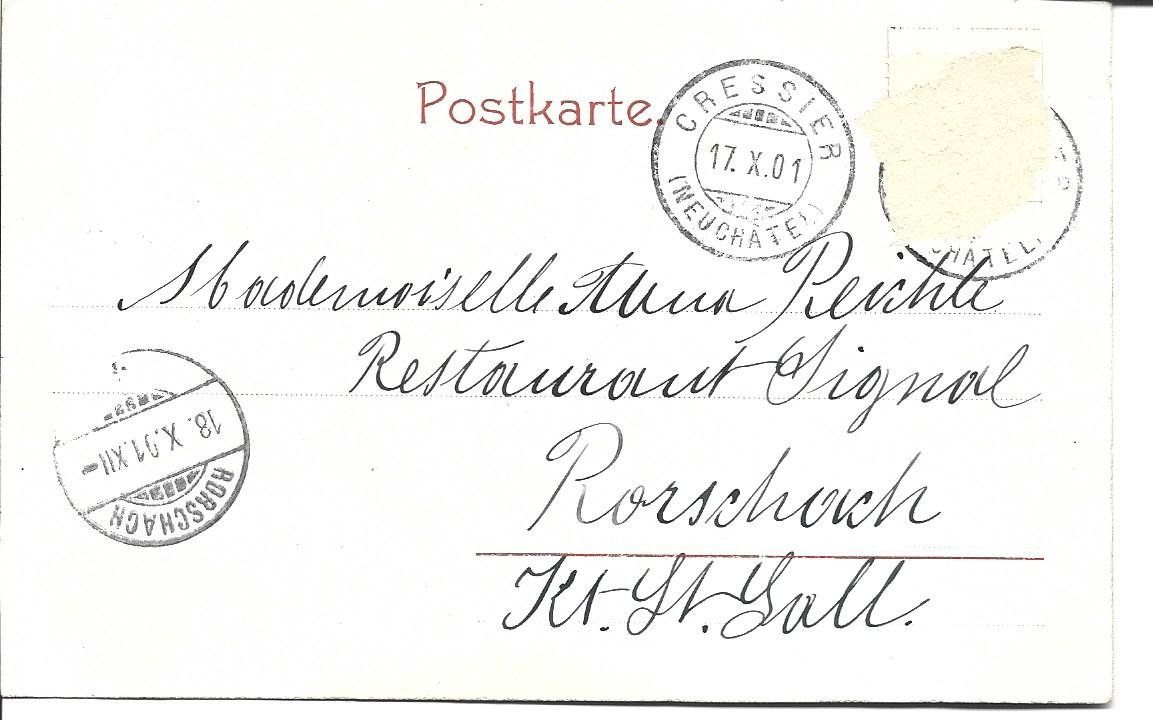 Postkarte.
CRESSIER
17. X. 01
(NEUCHÂTEL)
CHÂTEL)
Mademoiselle Anna Reichle
Restaurant Signal
Rorschach
Kt. St. Gall.
18. X. 01. XII-
RORSCHACH